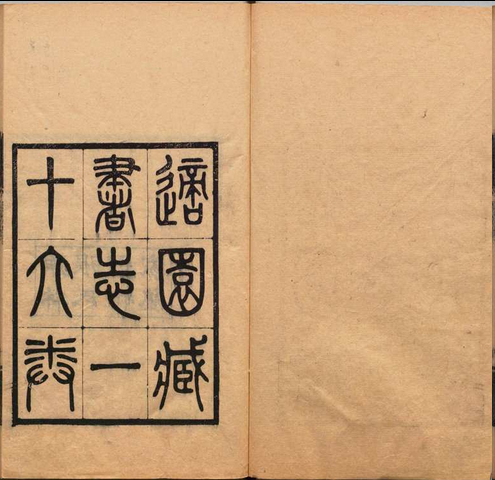 適園臧
書志一
十六卷